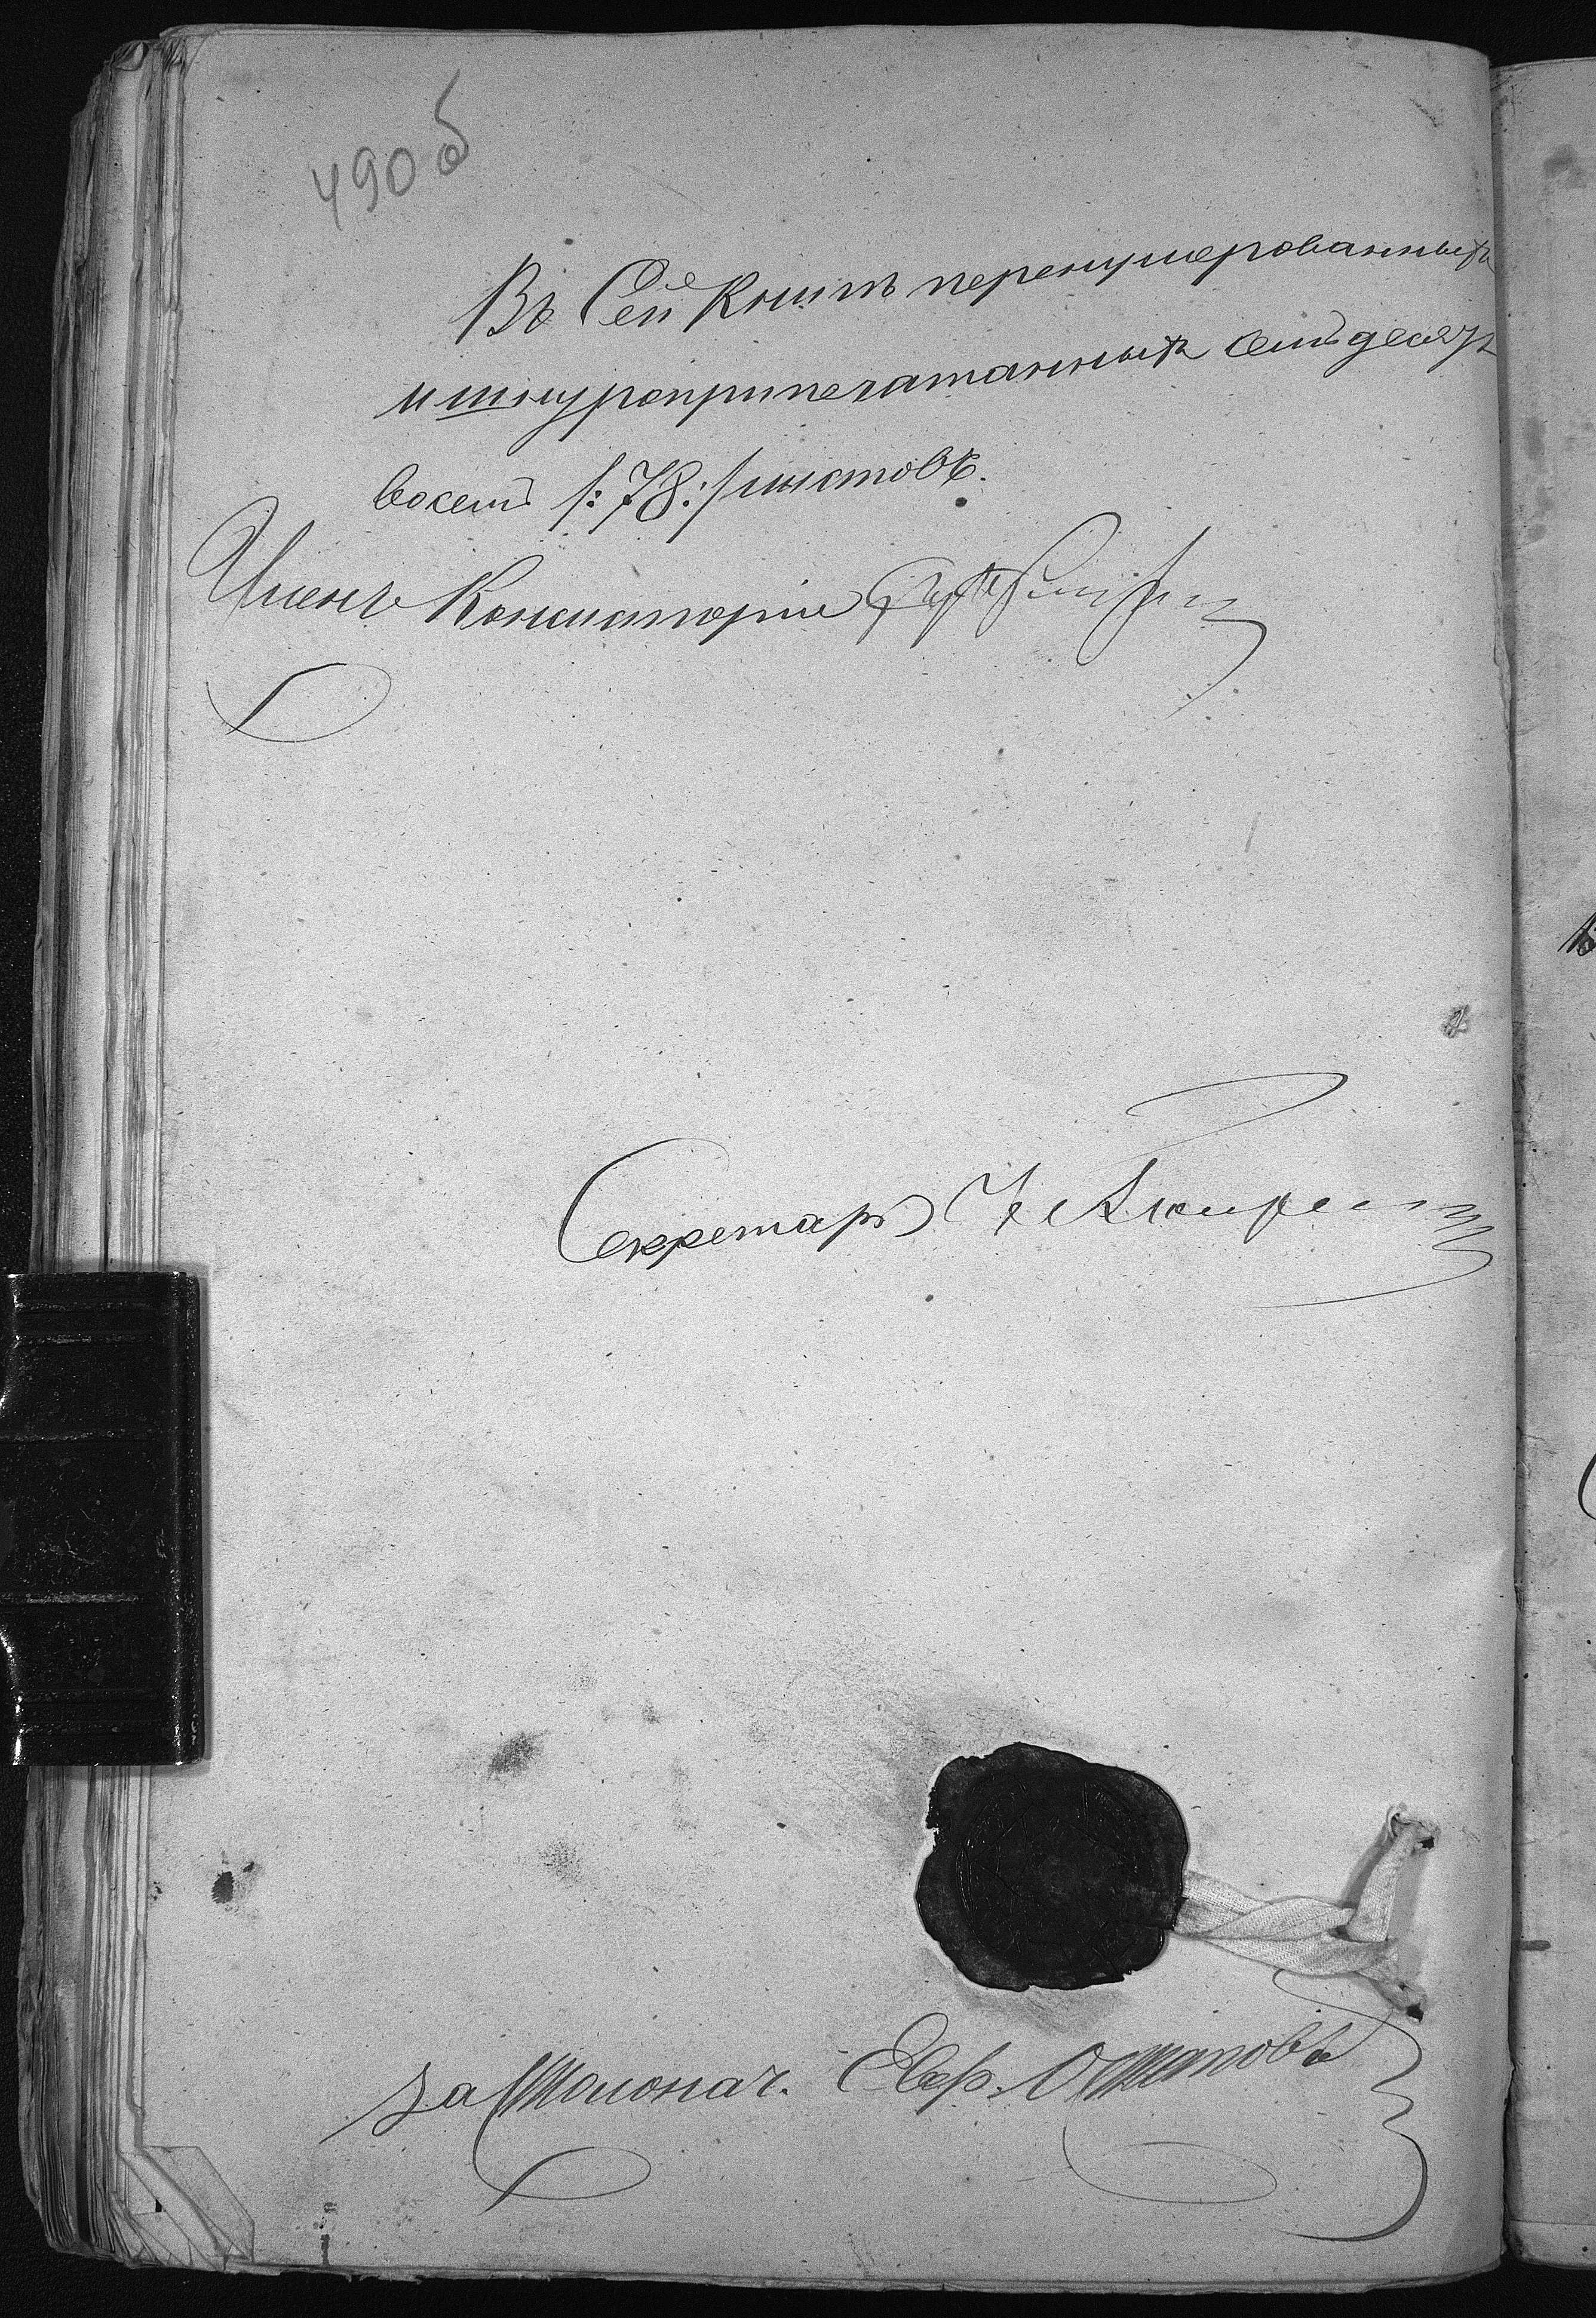 490 б
Въ Сей Книгѣ перенумерованныхъ
и шнуроприпечатанныхъ семьдесятъ
восемь /: 78 :/ листовъ.
Членъ Консисторіи
Секретарь
За Столонач. Евр. Остаповъ